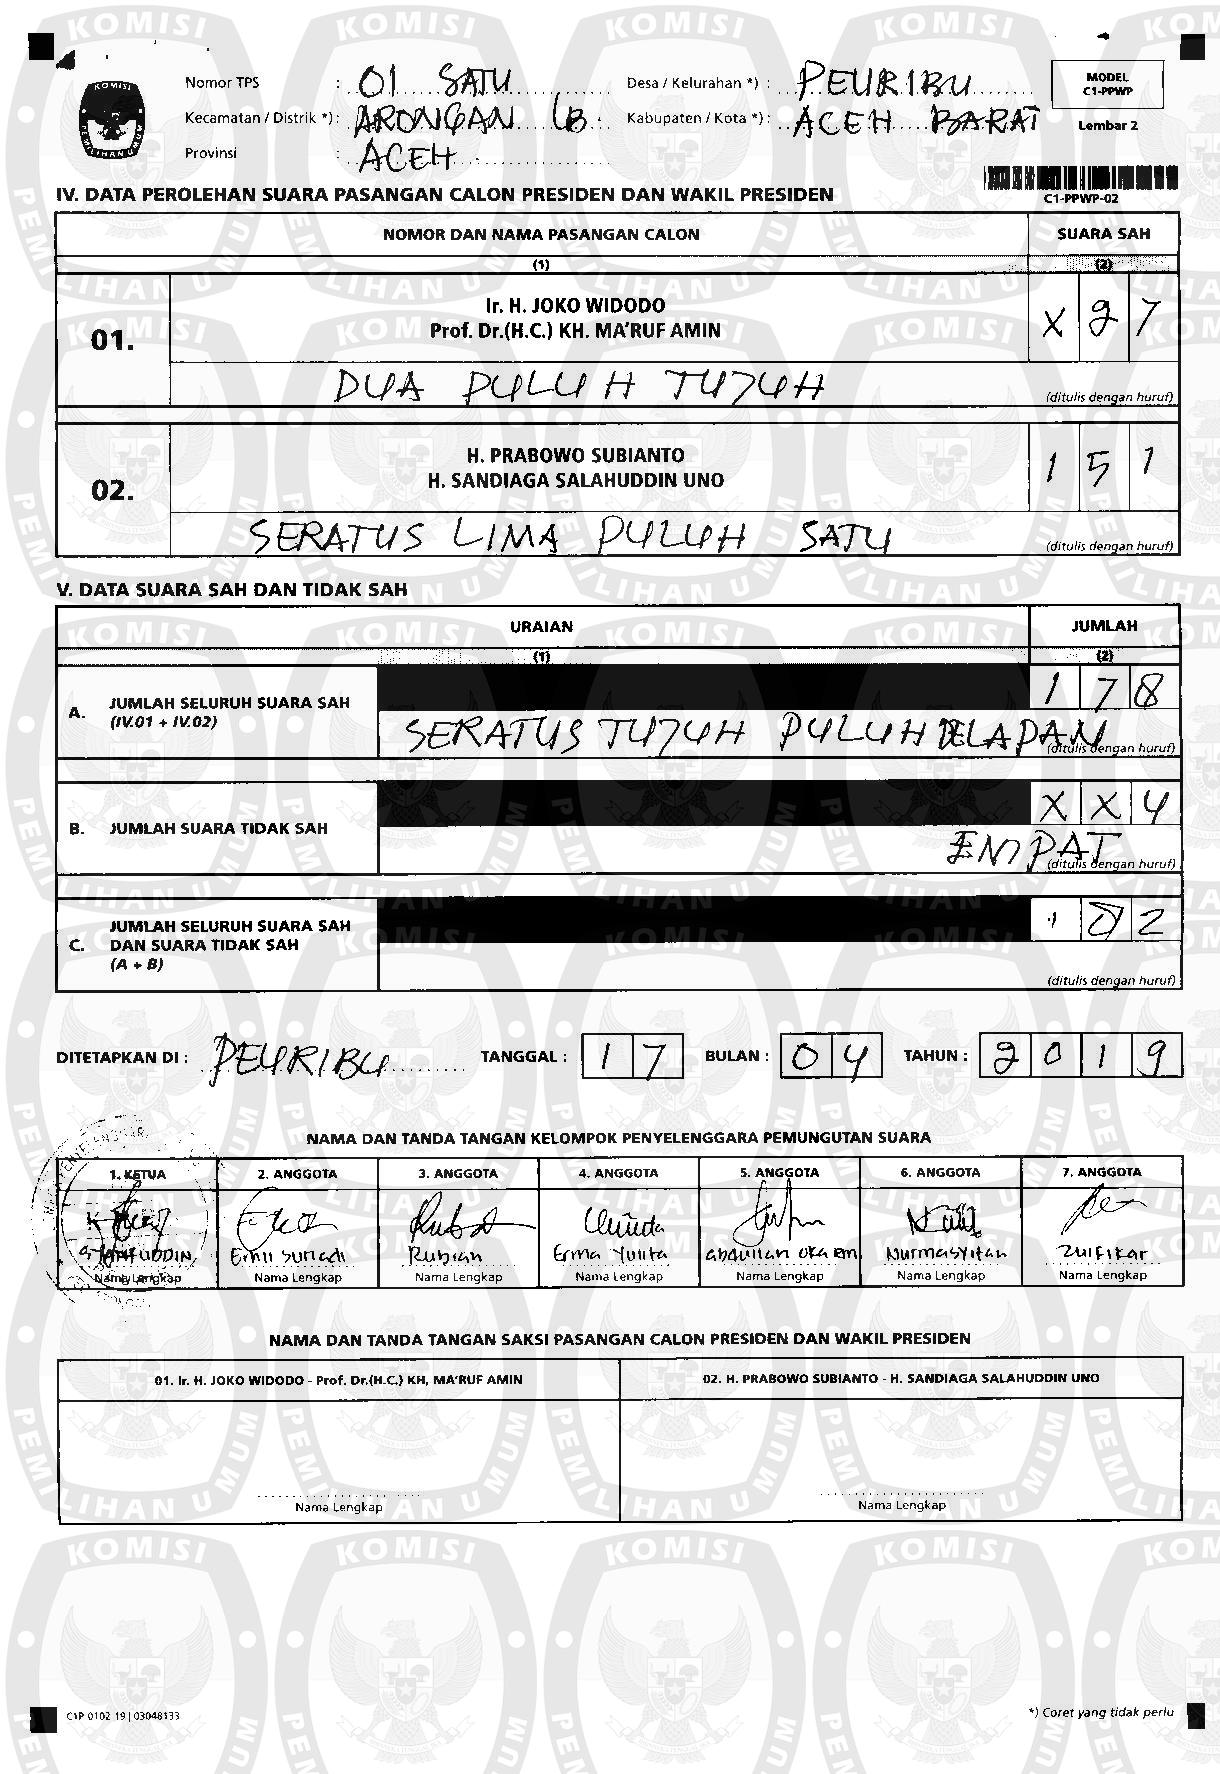 Nomor TPS : 01 SATU Desa / Kelurahan *) : PEURIBU
MODEL
C1-PPWP
Kecamatan / Distrik *): ARONGAN LB. Kabupaten / Kota *): ACEH BARAT
Lembar 2
Provinsi : ACEH
C1-PPWP-02
IV. DATA PEROLEHAN SUARA PASANGAN CALON PRESIDEN DAN WAKIL PRESIDEN
NOMOR DAN NAMA PASANGAN CALON SUARA SAH
(1) (2)
01. Ir. H. JOKO WIDODO
Prof. Dr.(H.C.) KH. MA'RUF AMIN X 2 7
DUA PULUH TUJUH (ditulis dengan huruf)
02. H. PRABOWO SUBIANTO
H. SANDIAGA SALAHUDDIN UNO 1 5 1
SERATUS LIMA PULUH SATU (ditulis dengan huruf)
V. DATA SUARA SAH DAN TIDAK SAH
URAIAN JUMLAH
(1) (2)
A. JUMLAH SELURUH SUARA SAH
(IV.01 + IV.02) 1 7 8
SERATUS TUJUH PULUH DELAPAN (ditulis dengan huruf)
B. JUMLAH SUARA TIDAK SAH X X 4
EMPAT (ditulis dengan huruf)
C. JUMLAH SELURUH SUARA SAH
DAN SUARA TIDAK SAH
(A + B) 1 8 2
(ditulis dengan huruf)
DITETAPKAN DI : PEURIBU TANGGAL : 1 7 BULAN : 0 4 TAHUN : 2 0 1 9
NAMA DAN TANDA TANGAN KELOMPOK PENYELENGGARA PEMUNGUTAN SUARA
1. KETUA 2. ANGGOTA 3. ANGGOTA 4. ANGGOTA 5. ANGGOTA 6. ANGGOTA 7. ANGGOTA
Emil Suriadi Rubian Erma Yulita Nurmasyitah Zulfikar
Nama Lengkap Nama Lengkap Nama Lengkap Nama Lengkap Nama Lengkap Nama Lengkap Nama Lengkap
NAMA DAN TANDA TANGAN SAKSI PASANGAN CALON PRESIDEN DAN WAKIL PRESIDEN
01. Ir. H. JOKO WIDODO - Prof. Dr.(H.C.) KH, MA'RUF AMIN 02. H. PRABOWO SUBIANTO - H. SANDIAGA SALAHUDDIN UNO
Nama Lengkap Nama Lengkap
C1P 0102 19 | 03048133 *) Coret yang tidak perlu